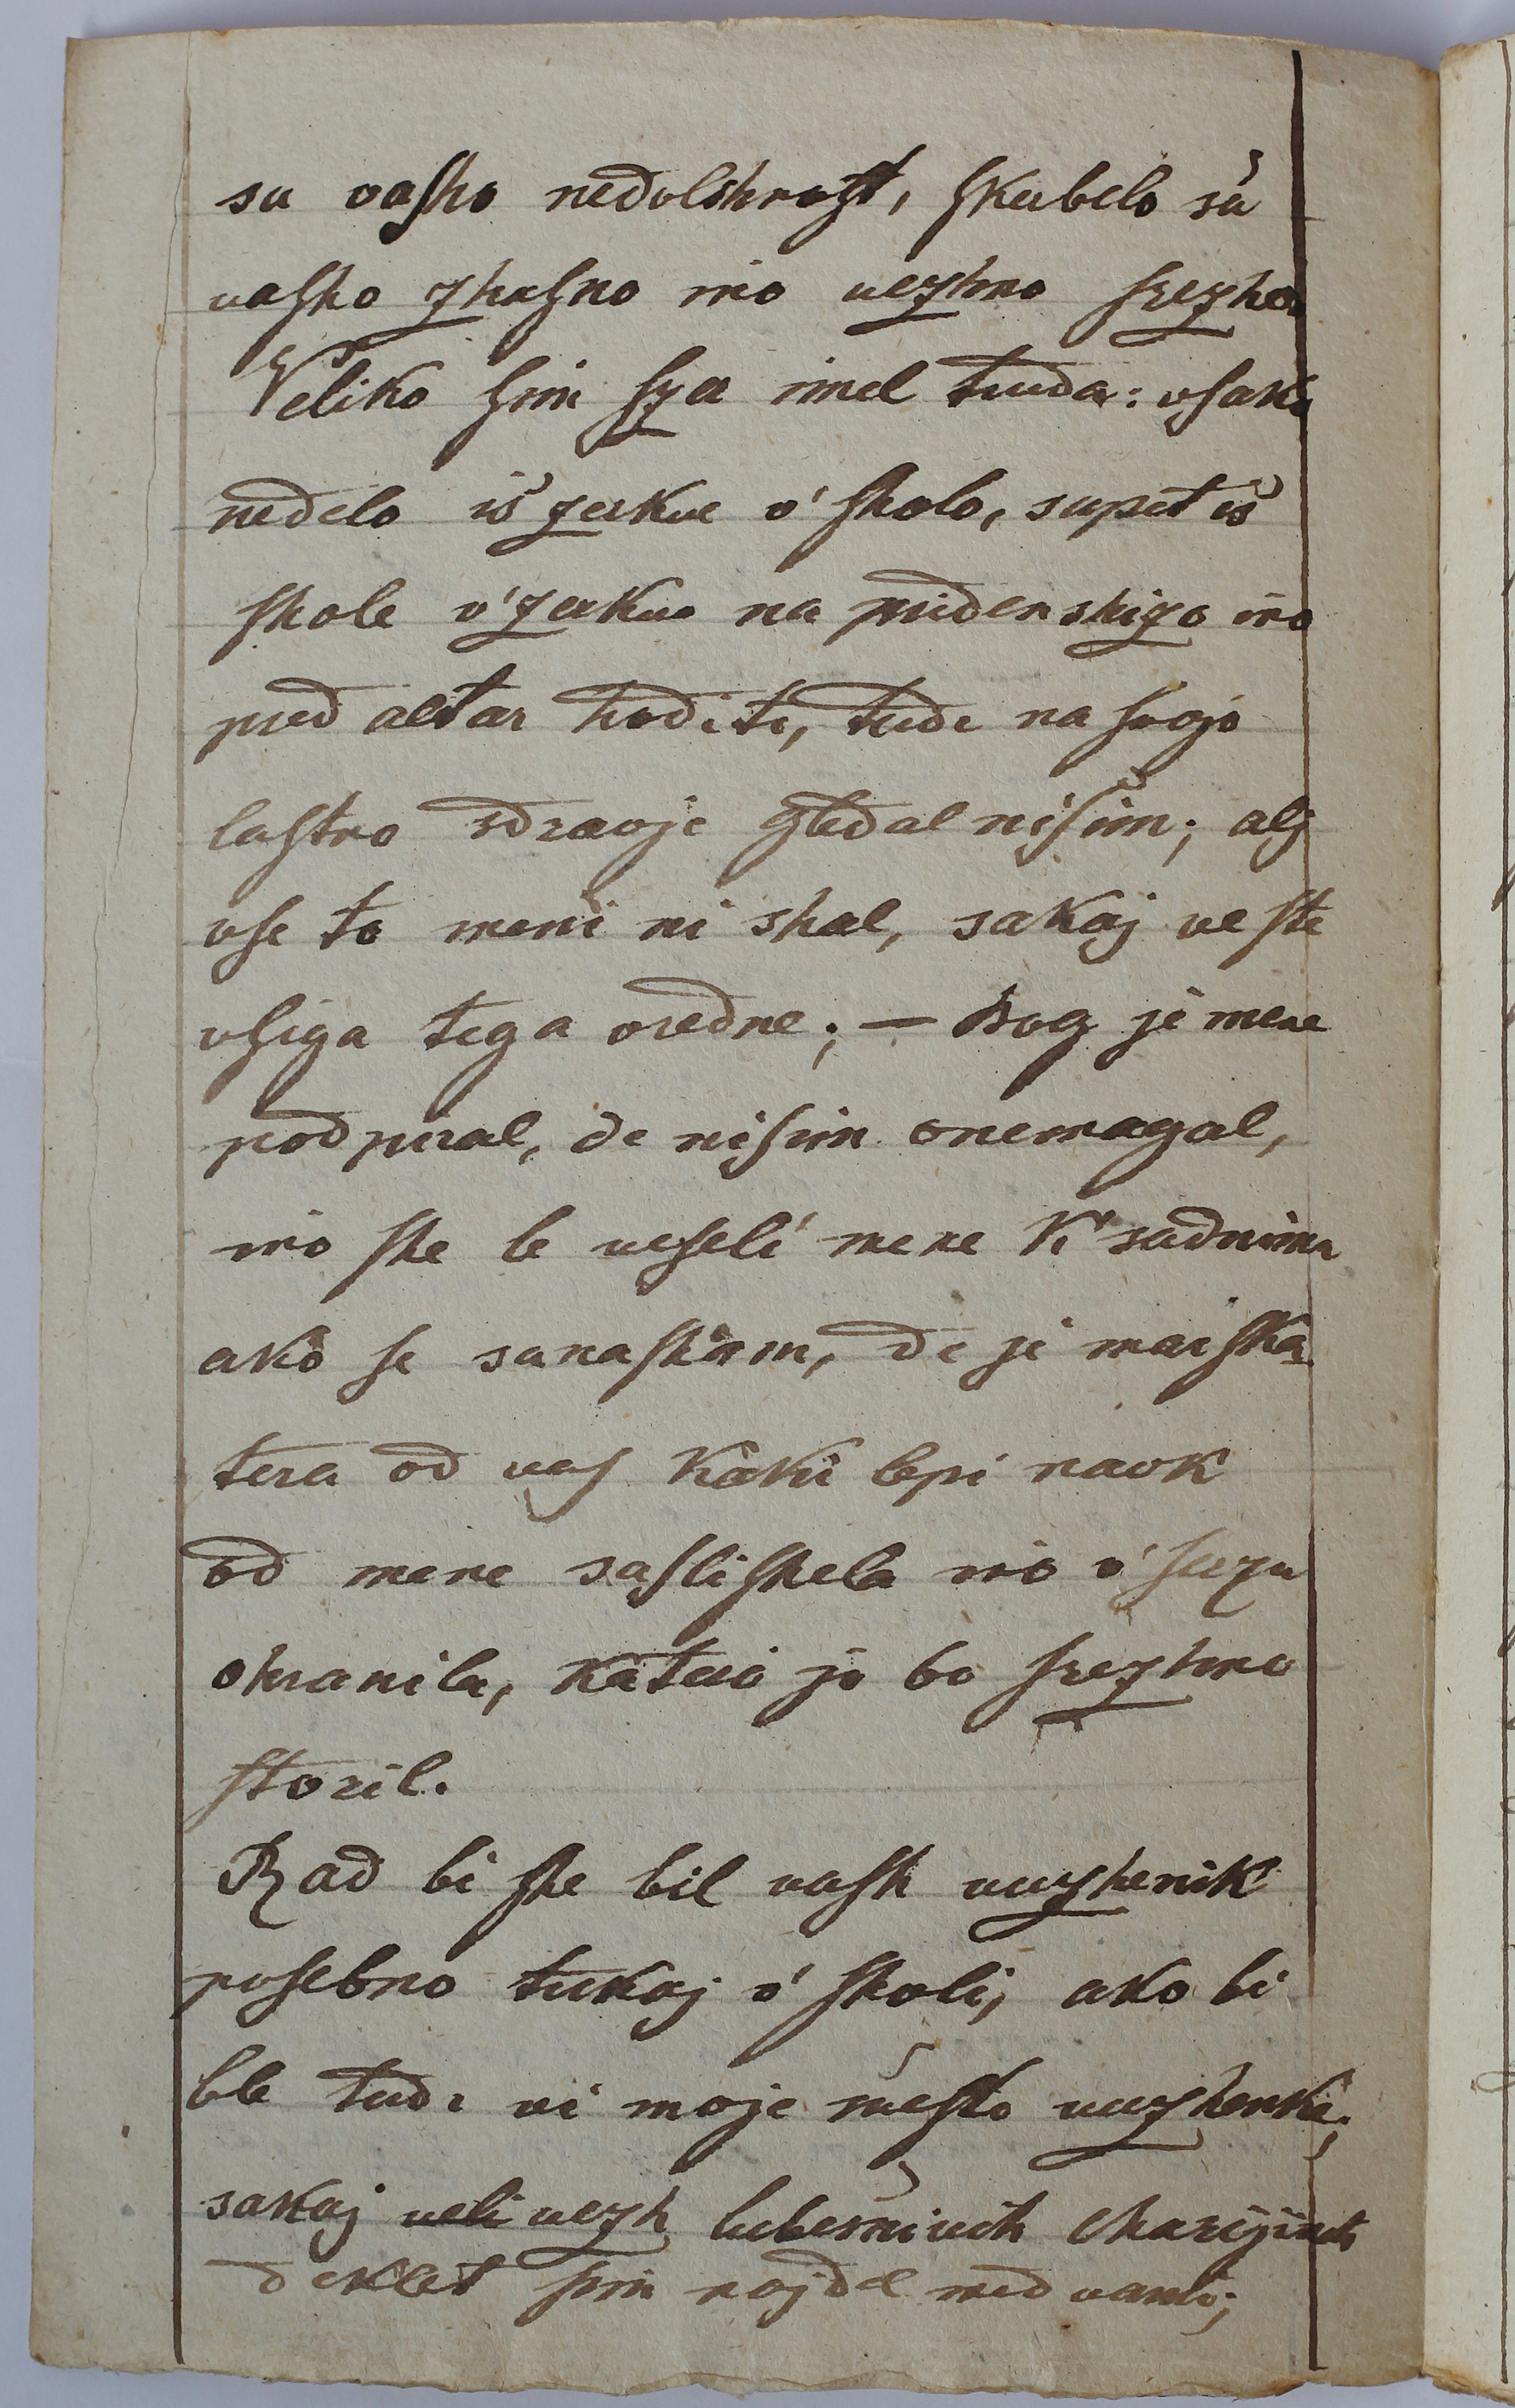 sa vaſho nedolshnoſt, ſkerbelo sa
vaſho zhaſno ino vezhno ſrezho
Veliko ſim ſza imel truda: vſako
nedelo is zerkve v' ſholo, supet is
ſhole v' zerkvo na pridenshizo ino
pred altar hoditi, tudi na ſvojo
laſtno sdravje gledal niſim; alj
vſe to meni ni shal, sakaj ve ſte
vſiga tega vredne; — Bog je mene
podpiral, de niſim onemagal,
ino ſhe le veſeli mene k' sadnimu
ako ſe sanaſham, de je marſka-
tera od vaſ kaki lepi navk
od mene saſliſhala ino v' ſerzu
ohranila, kateri jo bo ſrezhno
ſtoril.
Rad bi ſhe bil vaſh vuzhenik
poſebno tukaj v' ſholi, ako bi
ble tudi vi moje meſto vuzhenke;
sakaj veli vezh lubesnivih Marijinih
deklet ſim najdel med vami;